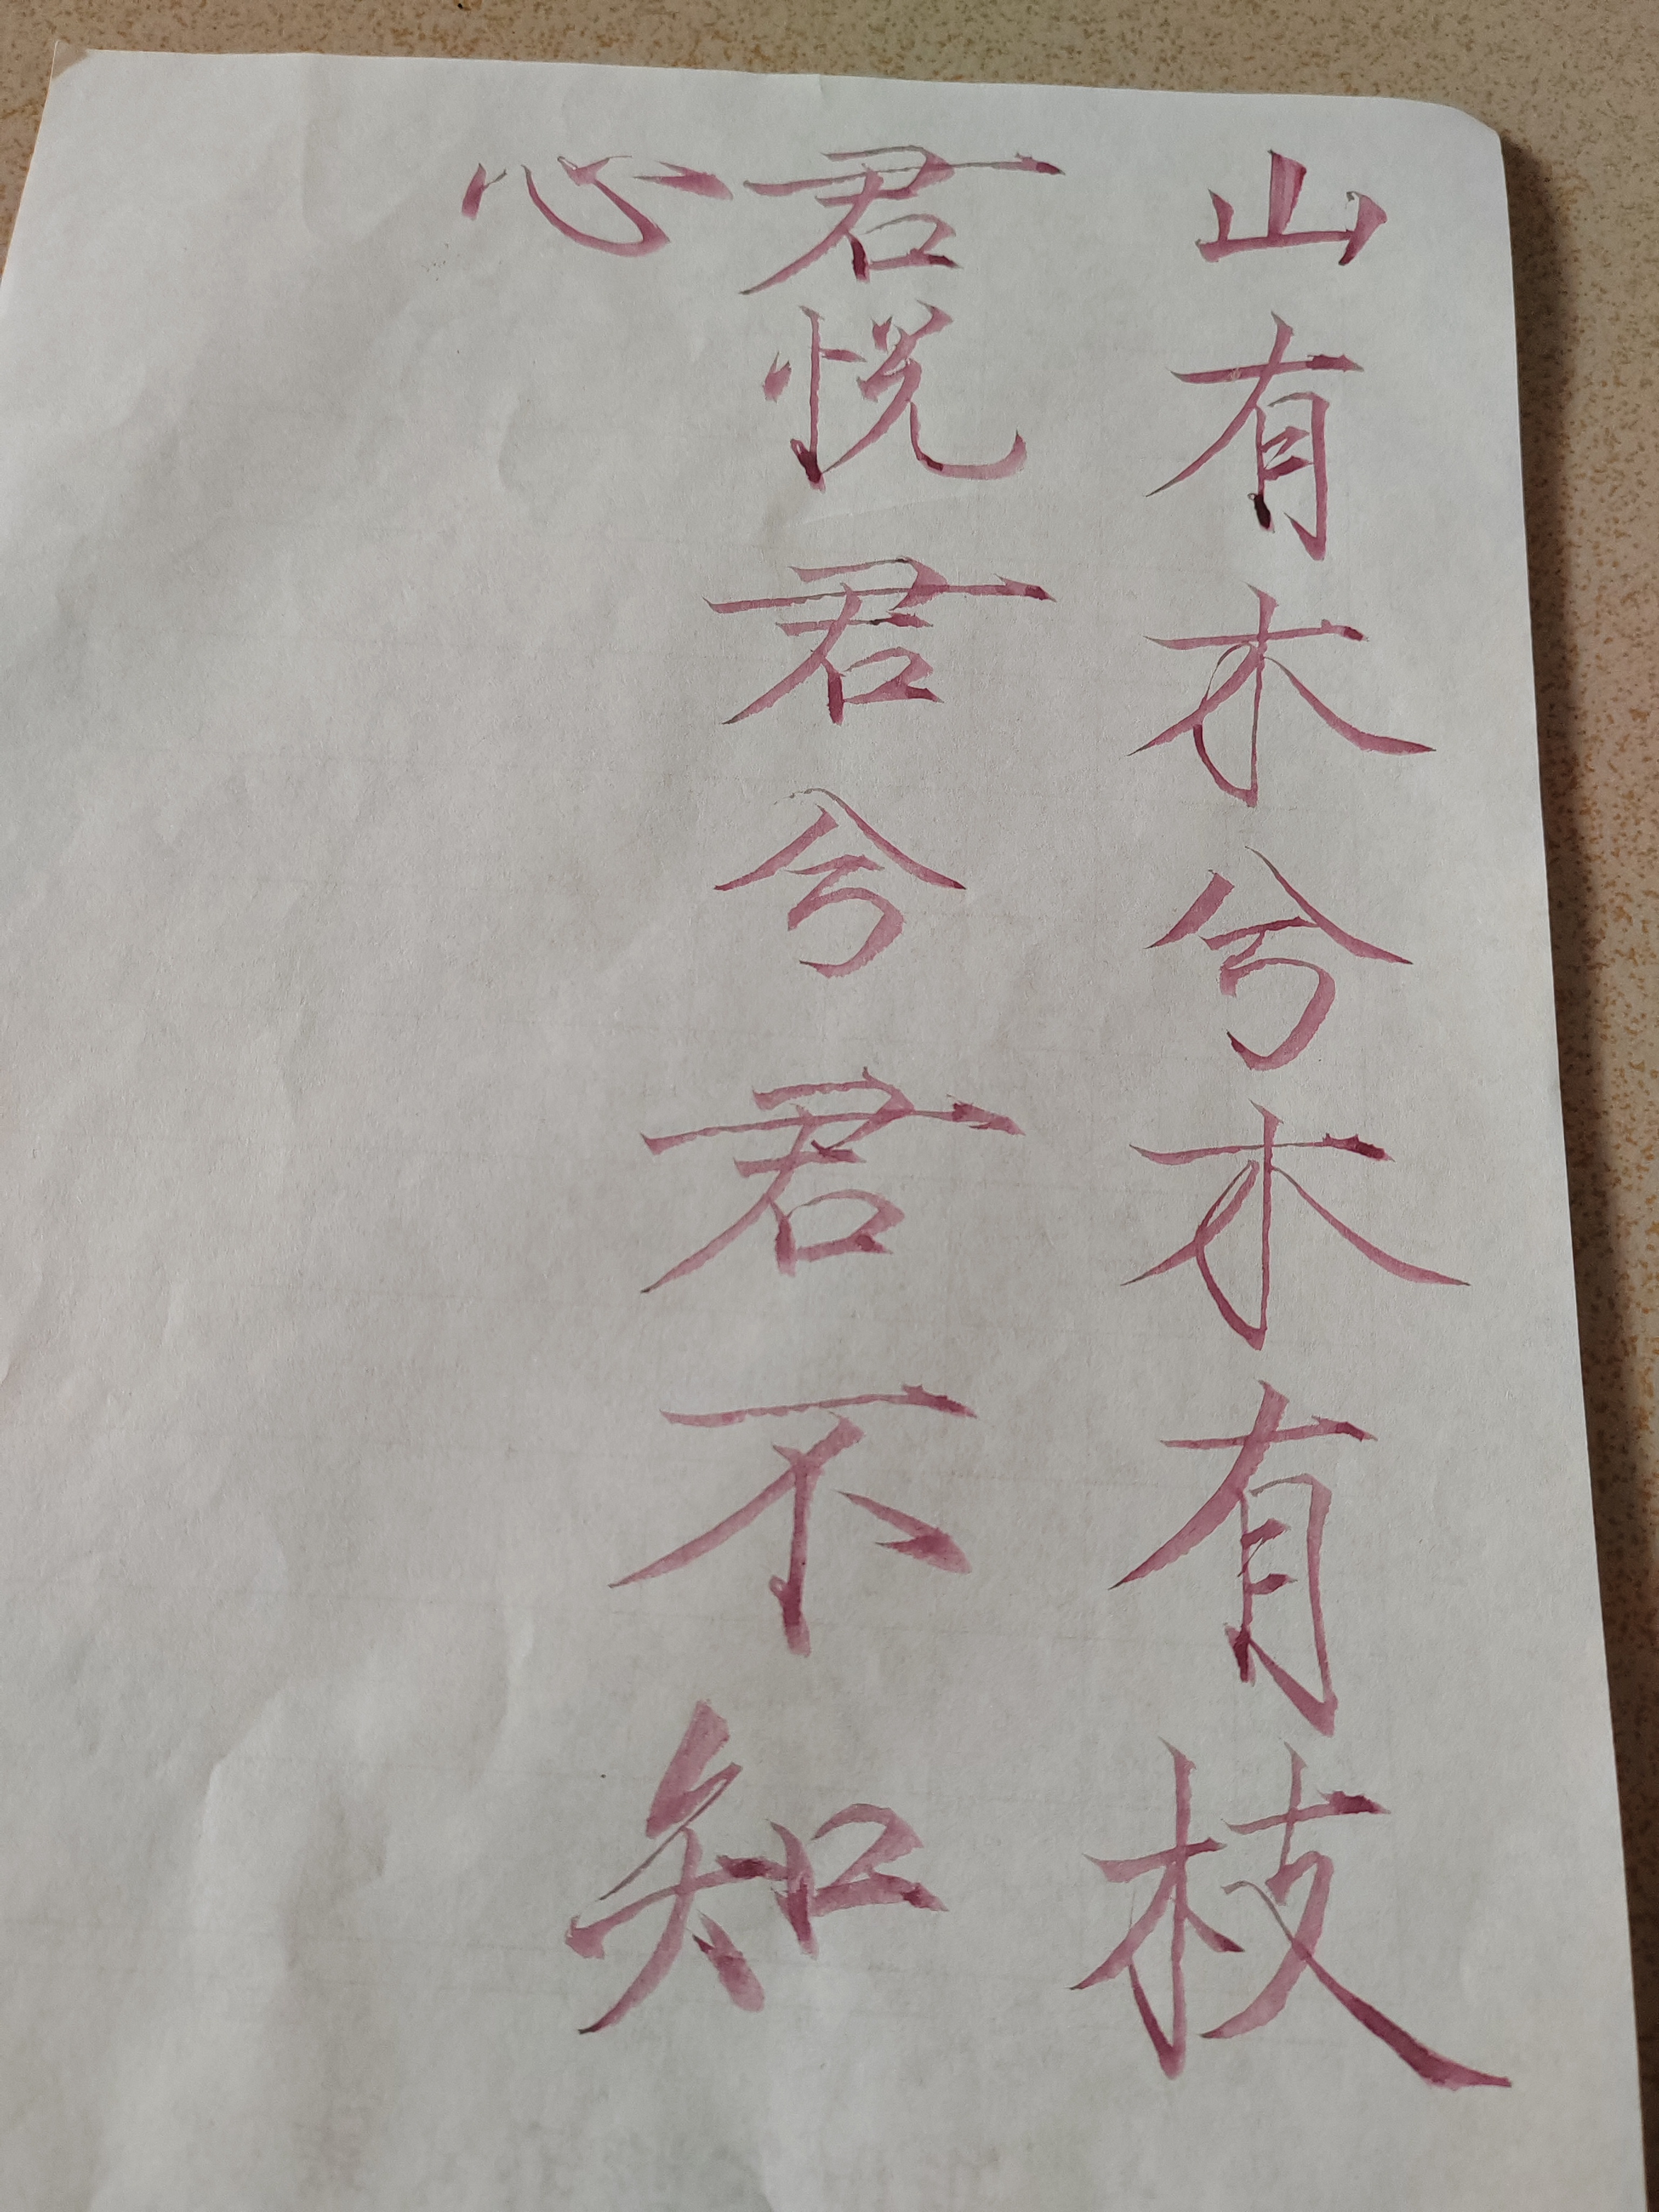 山有木兮木有枝
君悦君兮君不知
心